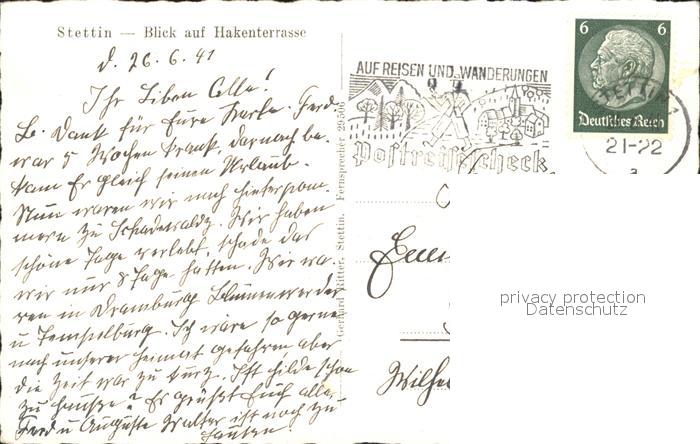 Stettin — Blick auf Hakenterrasse
d. 26.6.41
Ihr Lieben Alle!
L. Dank für Eure Karte. Ferd.
war 5 Wochen krank, darnach be-
kam Er gleich seinen Urlaub.
Nun waren wir nach Hinterpom-
mern zu Wir haben
schöne Tage verlebt, schade das
wir nur 8 Tage hatten. Wir wa-
ren in Dramburg
u Tempelburg. Ich wäre so gerne
nach unserer Heimat gefahren, aber
die Zeit war zu kurz. Ist Hilde schon
zu Hause? Es grüßt Euch alle
Ferd u Auguste Walter ist noch zu
Hause
Gerhard Ritter, Stettin, Fernsprecher 29506
AUF REISEN UND WANDERUNGEN
Postreisescheck
6 6
Deutsches Reich
STETTIN
21-22
a
Wilhe
privacy protection
Datenschutz